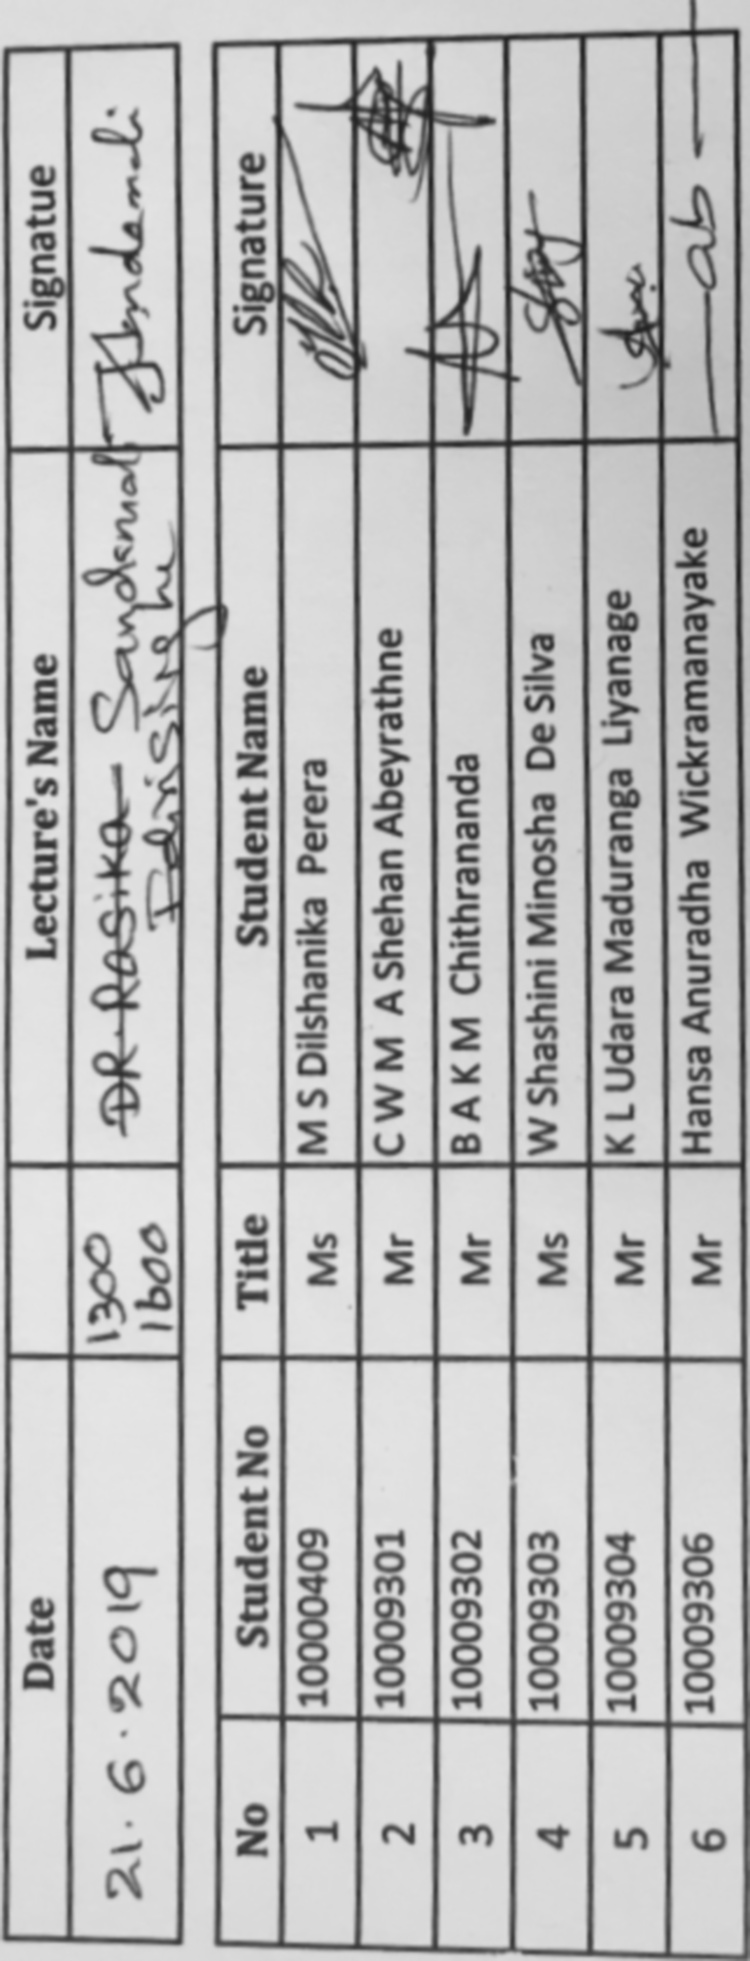 Date Lecture's Name Signatue
21.6.2019 1300 DR. Rasika Sandamali
1600
No Student No Title Student Name Signature
1 10000409 Ms M S Dilshanika Perera
2 10009301 Mr C W M A Shehan Abeyrathne
3 10009302 Mr B A K M Chithrananda
4 10009303 Ms W Shashini Minosha De Silva
5 10009304 Mr K L Udara Maduranga Liyanage
6 10009306 Mr Hansa Anuradha Wickramanayake